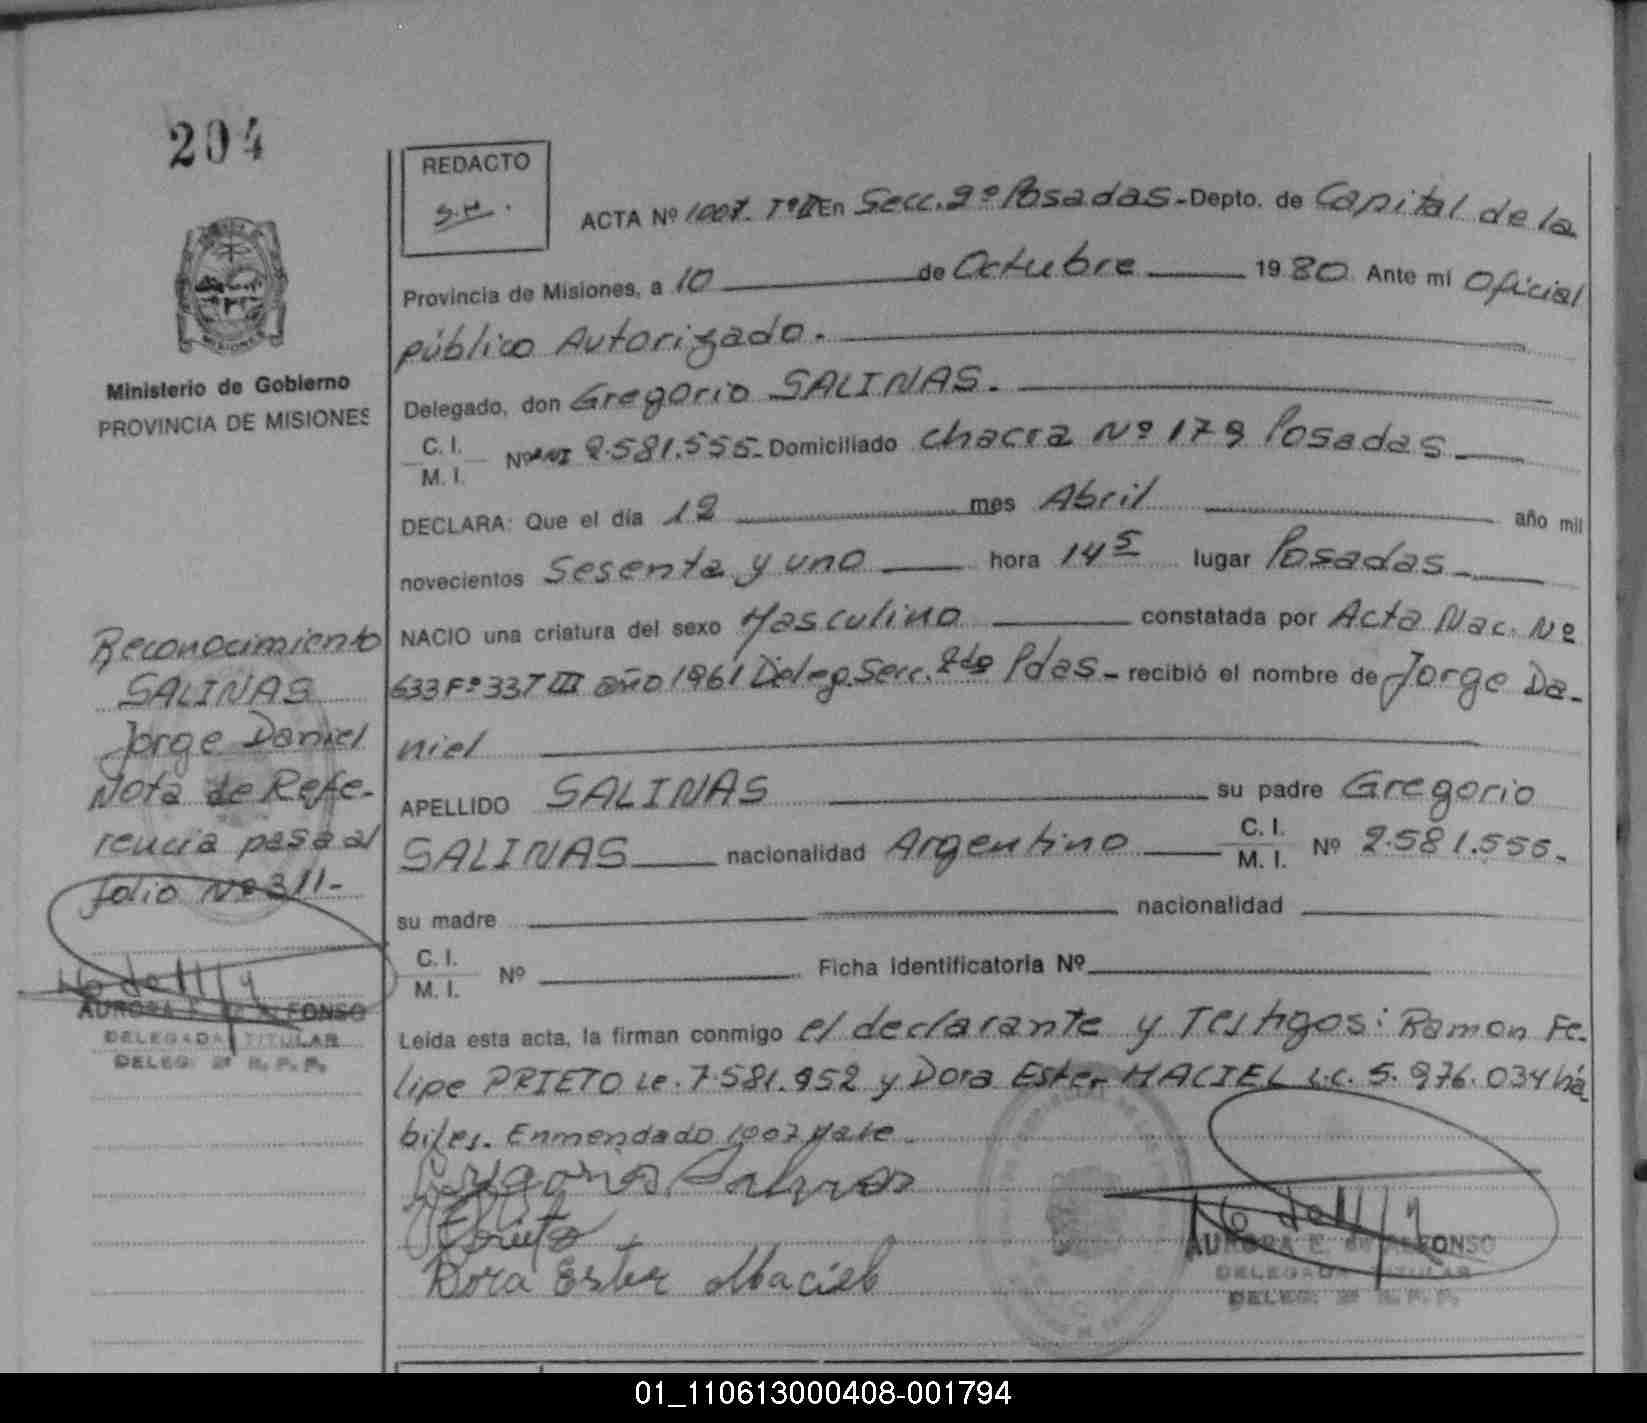 204
REDACTO
S.M.
ACTA Nº 1007. Tº II En Secc. 2º Posadas.- Depto. de Capital de la
Provincia de Misiones, a 10 de Octubre 1980. Ante mi Oficial
público Autorizado.
Delegado, don Gregorio SALINAS.
C. I.
M. I.
Nº 2.581.555.- Domiciliado Chacra Nº 179 Posadas
DECLARA: Que el día 12 mes Abril año mil
novecientos Sesenta y uno hora 14 5 lugar Posadas
NACIO una criatura del sexo Masculino constatada por Acta Nac. Nº
633 Fº 337 III año 1961 Deleg. Secc. 2da Pdas.- recibió el nombre de Jorge Da-
niel
APELLIDO SALINAS su padre Gregorio
SALINAS nacionalidad Argentino C. I. M. I. Nº 2.581.555.
su madre nacionalidad
C. I.
M. I.
Nº Ficha Identificatoria Nº
Leída esta acta, la firman conmigo el declarante y Testigos: Ramon Fe-
lipe PRIETO Le. 7.581.952 y Dora Ester MACIEL L.C. 5.976.034 há
biles. Enmendado 1007 Vale.
Gregorio Salinas
Prieto
Dora Ester Maciel
AURORA E. de ALFONSO
DELEGADA TITULAR
DELEG. 2ª R. P. P.
MISIONES
Ministerio de Gobierno
PROVINCIA DE MISIONES
Reconocimiento
SALINAS
Jorge Daniel
Nota de Refe-
rencia pasa al
folio Nº 311-
AURORA E. de ALFONSO
DELEGADA TITULAR
DELEG. 2ª R. P. P.
01_110613000408-001794